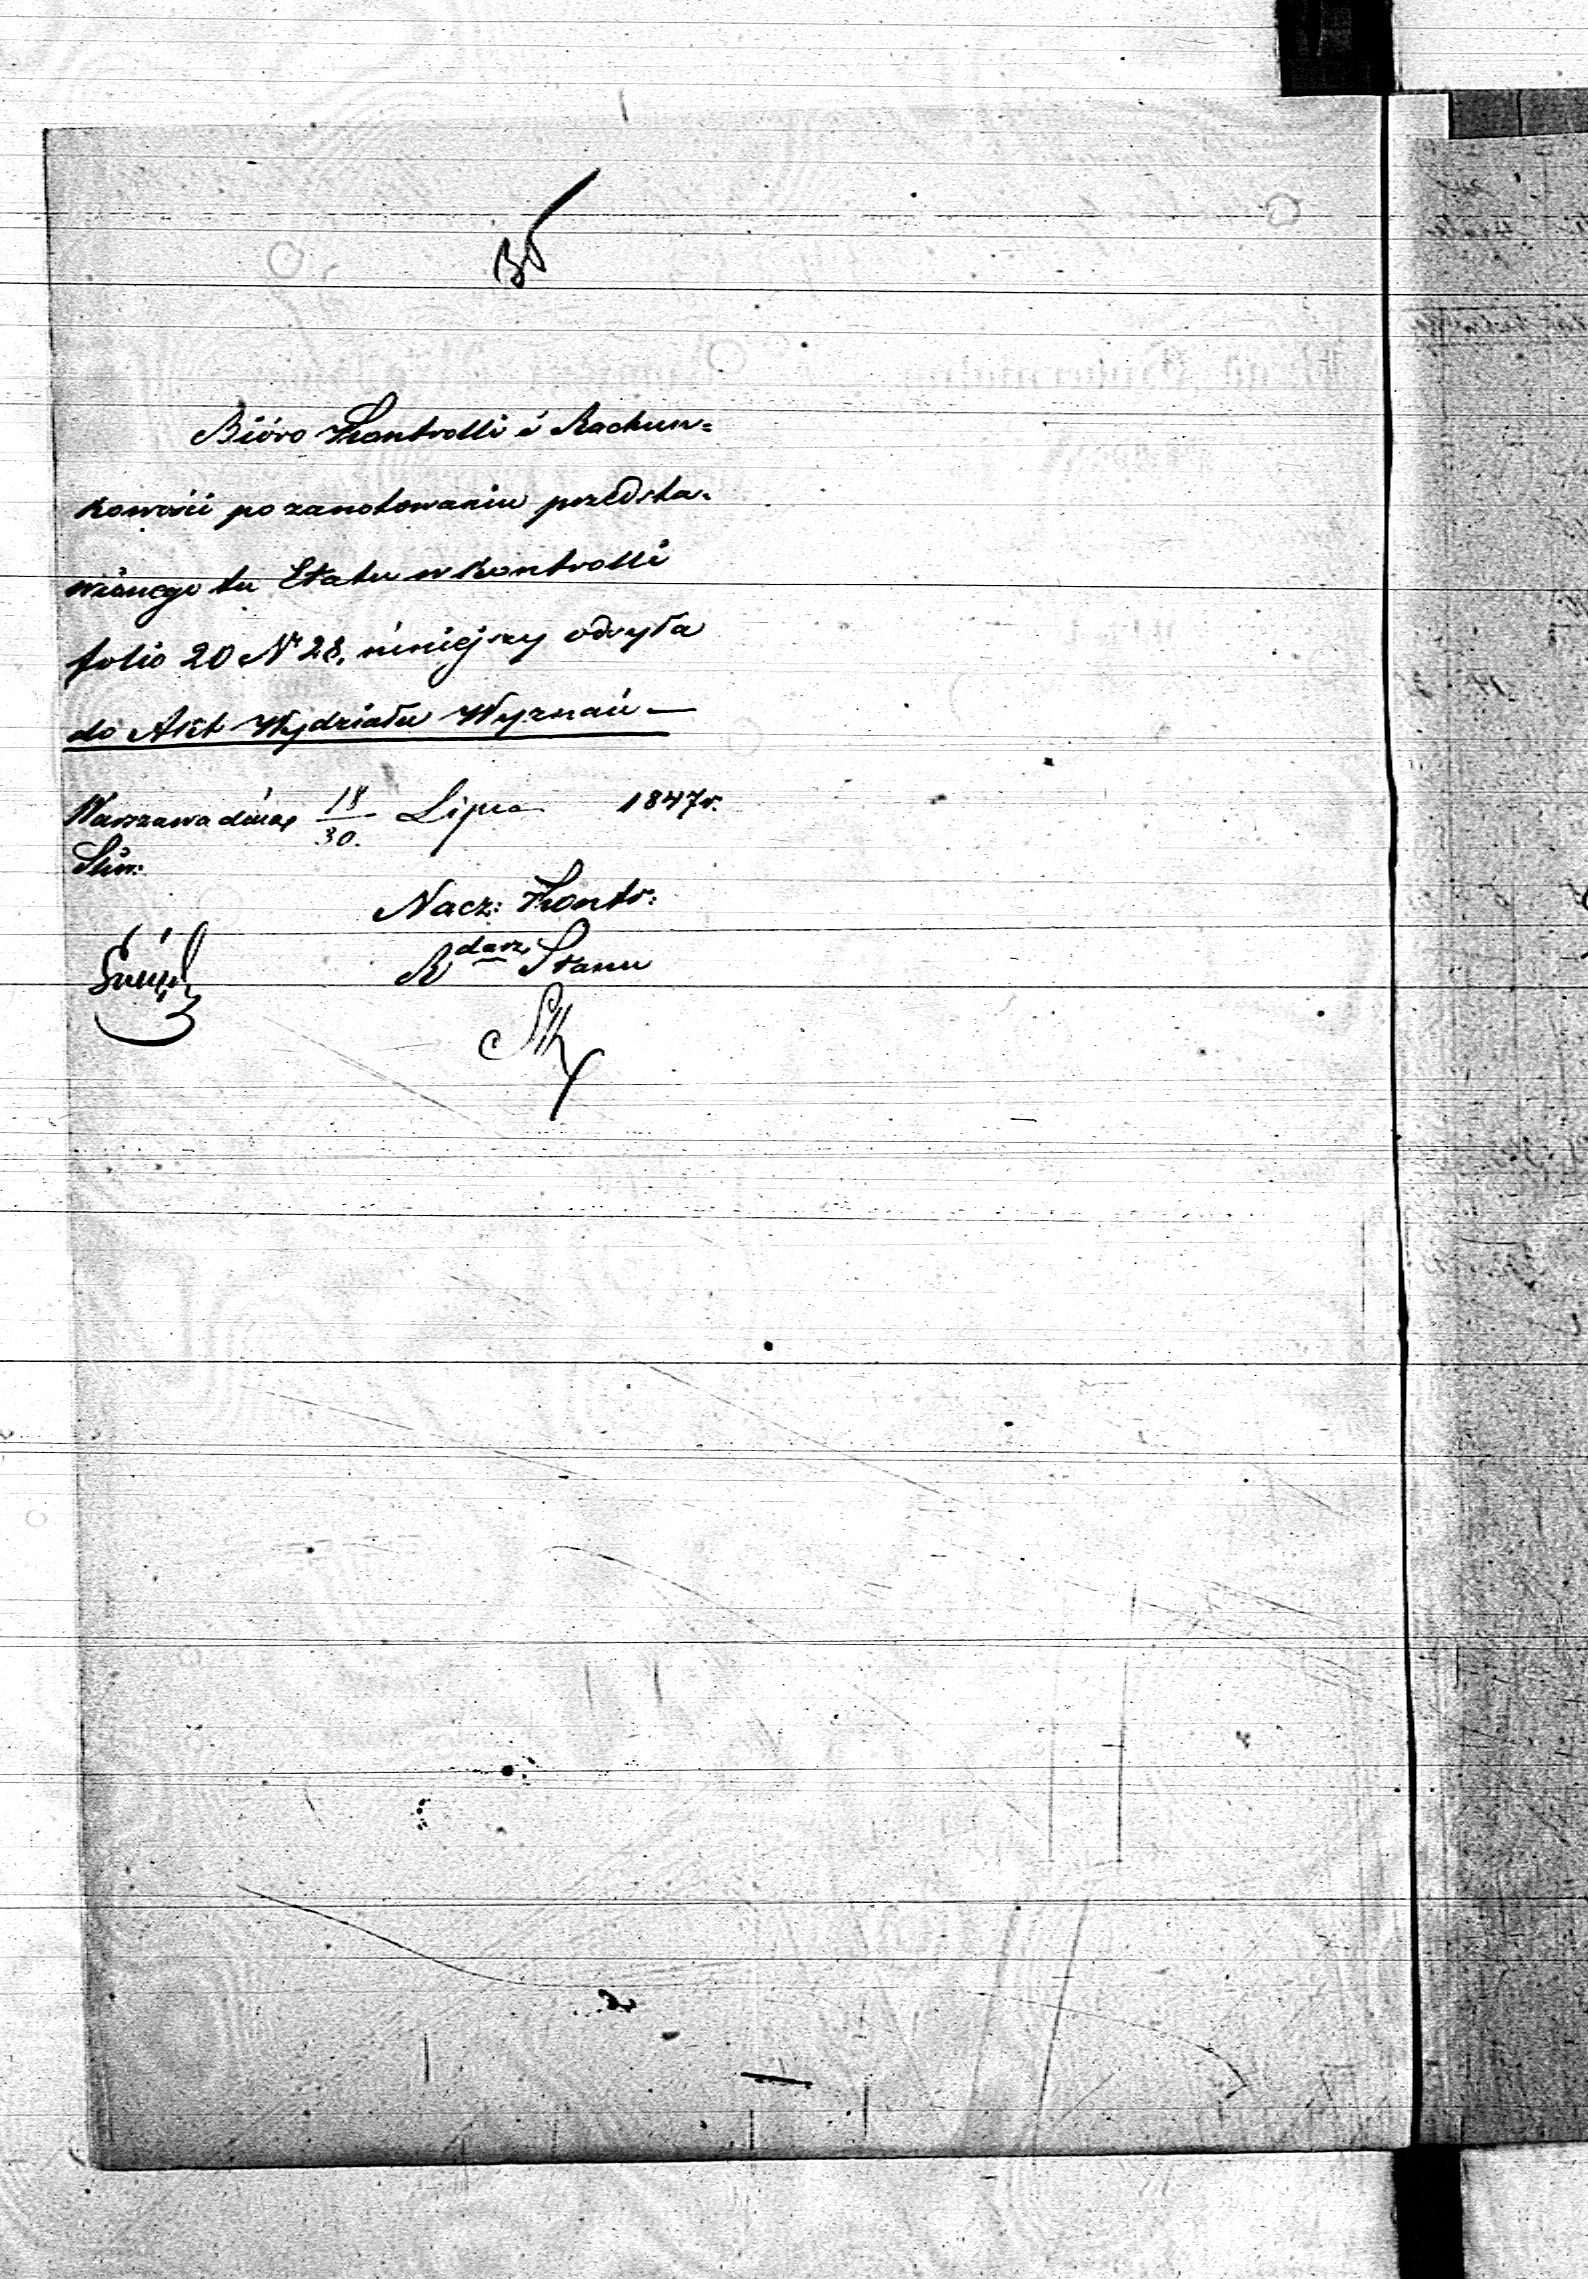 Bióro Kontrolli i Rachun=
kowości po zanotowaniu przedsta=
wionego tu Etatu w Kontrolli
folio 20 Nr 28, niniejszy odsyła
do Akt Wydziału Wyznań —
Warszawa dnia 18/30. Lipca 1847 r.
Nacz: Kontr:
Rdarz Stanu